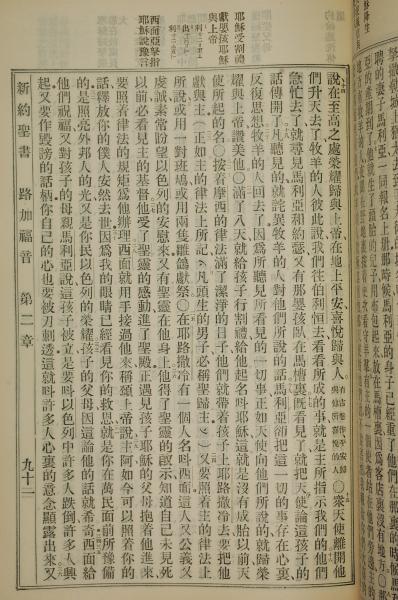 耶穌受割禮
獻嬰孩耶穌
與上帝
西面亞拏指
耶穌說豫言
說在至高之處榮耀歸與上帝在地上平安喜悅歸與人〇衆天使離開他
們升天去了牧羊的人彼此說我們往伯利恒去看看所成的事就是主所指示我們的他們
急忙去了就尋見馬利亞和約瑟又有那嬰孩臥在馬槽裏既看見了就把天使論這孩子的
話傳開了凡聽見的就詫異牧羊的人對他們所說的話馬利亞卻把這一切的事存在心裏
反復思想牧羊的人回去了因爲所聽見所看見的一切事正如天使向他們所說的就歸榮
耀與上帝讚美他〇滿了八天就給孩子行割禮給他起名叫耶穌這就是沒有成胎以前天
使所起的名〇按着摩西的律法滿了潔淨的日子他們就帶着孩子上耶路撒冷去要把他
獻與主(正如主的律法上所記凡頭生的男子必稱聖歸主)又要照着主的律法上
所說或用一對班鳩或用兩隻雛鴿獻祭〇在耶路撒冷有一個人名叫西面這人又公義又
虔誠素常盼望以色列的安慰來又有聖靈在他身上他得了聖靈的啟示知道自己未見死
以前必看見主的基督他受了聖靈的感動進了聖殿正遇見孩子耶穌的父母抱着他進來
要照着律法的規矩爲他辦理西面就用手接過他來稱頌上帝說主阿如今可以照着你的
話釋放你的僕人安然去世因爲我的眼睛已經看見你的救恩就是你在萬民面前所豫備
的是照亮外邦人的光又是你民以色列的榮耀孩子的父母因這論他的話就希奇西面給
他們祝福又對孩子的母親馬利亞說這孩子被立是要叫以色列中許多人跌倒許多人興
起又要作毀謗的話柄你自己的心也要被刀刺透這就叫許多人心裏的意念顯露出來又
新約聖書 路加福音 第二章